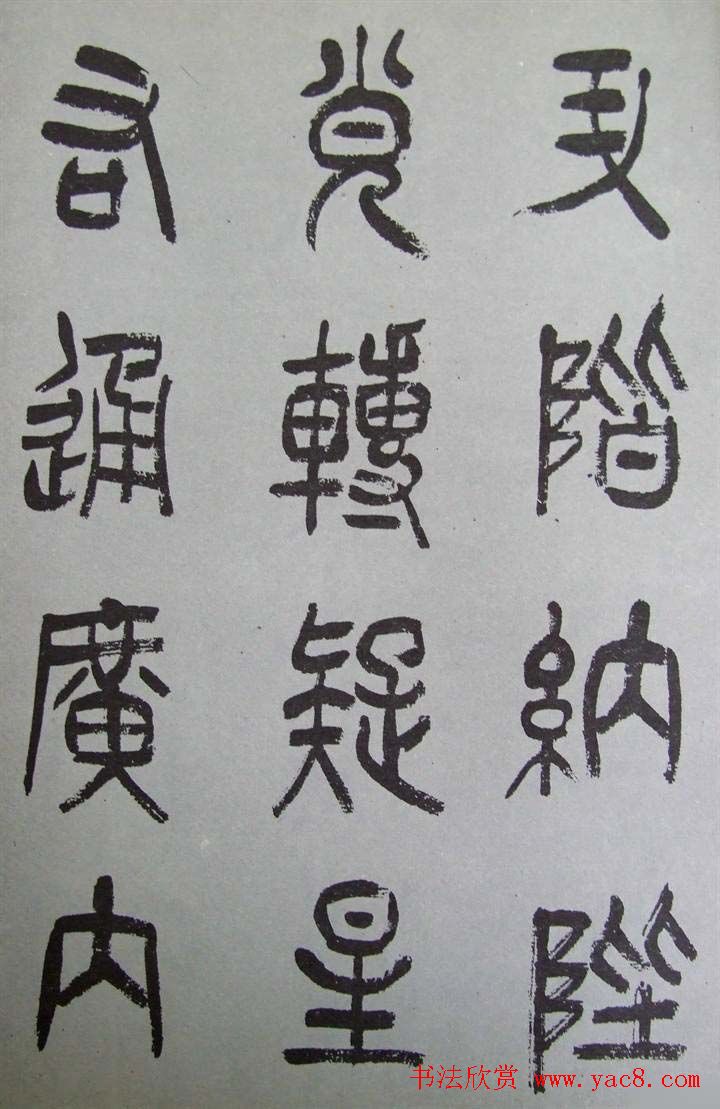 升階納陛
弁轉疑星
右通廣內
书法欣赏 www.yac8.com